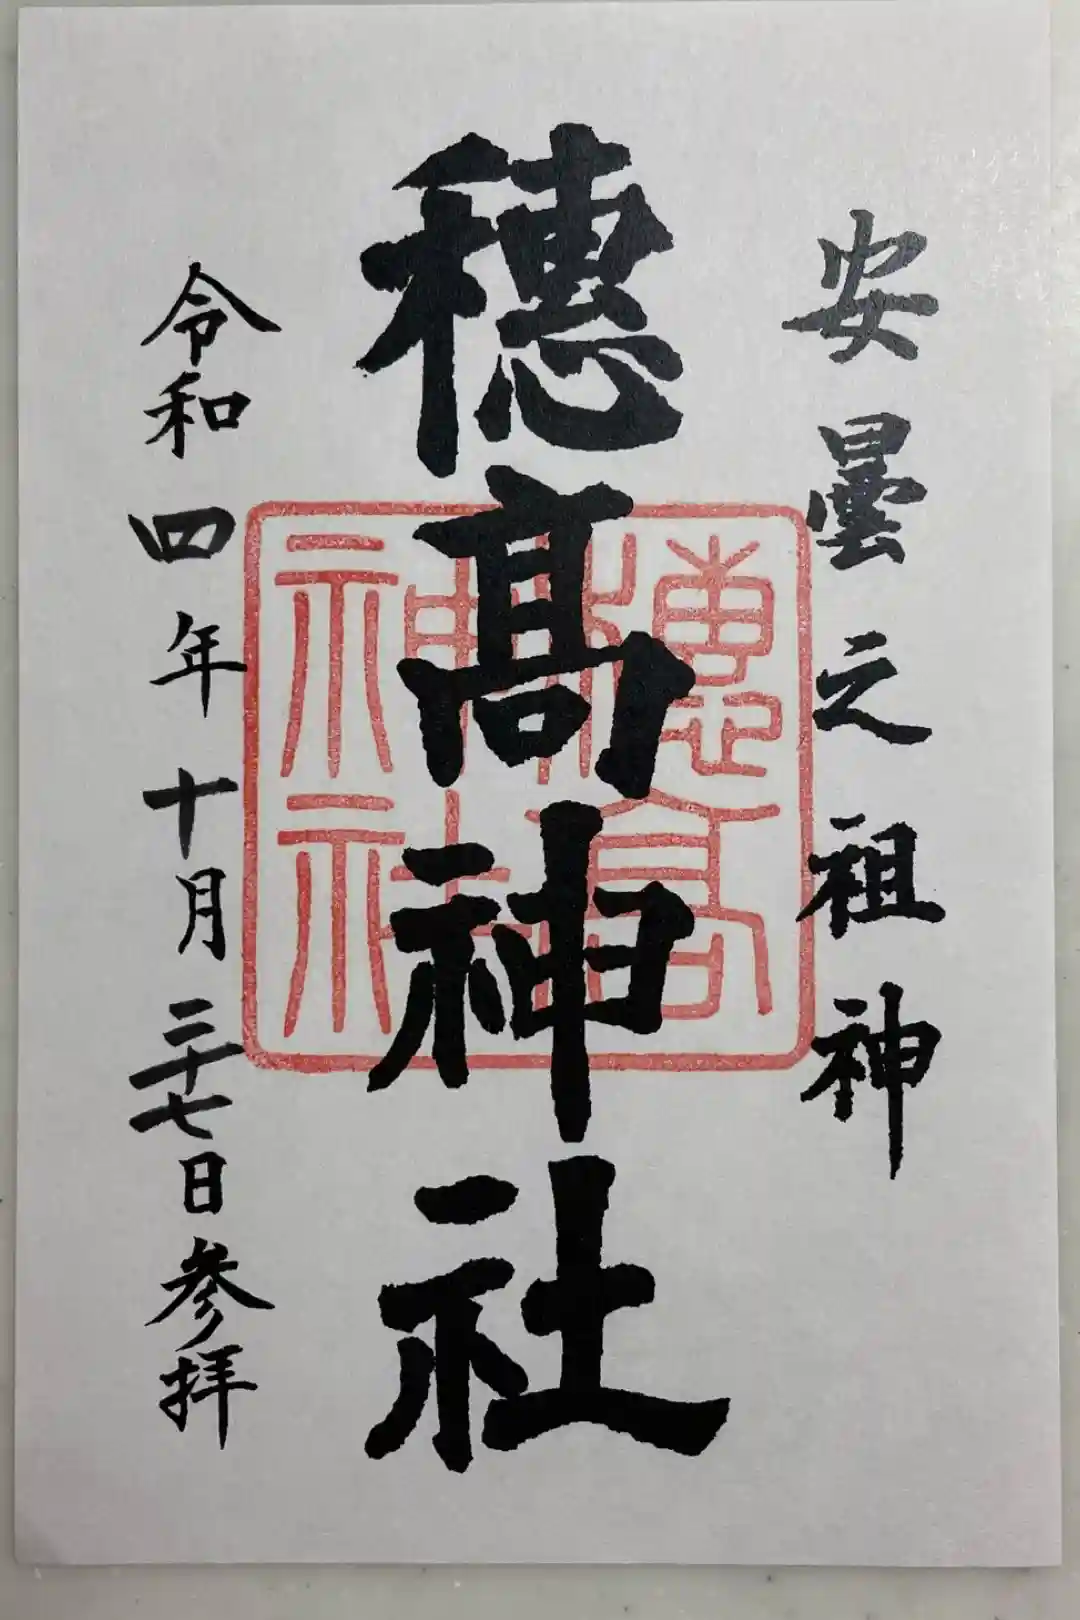 安曇之祖神
穂髙神社
穂高
神社
令和四年十月二十七日参拝